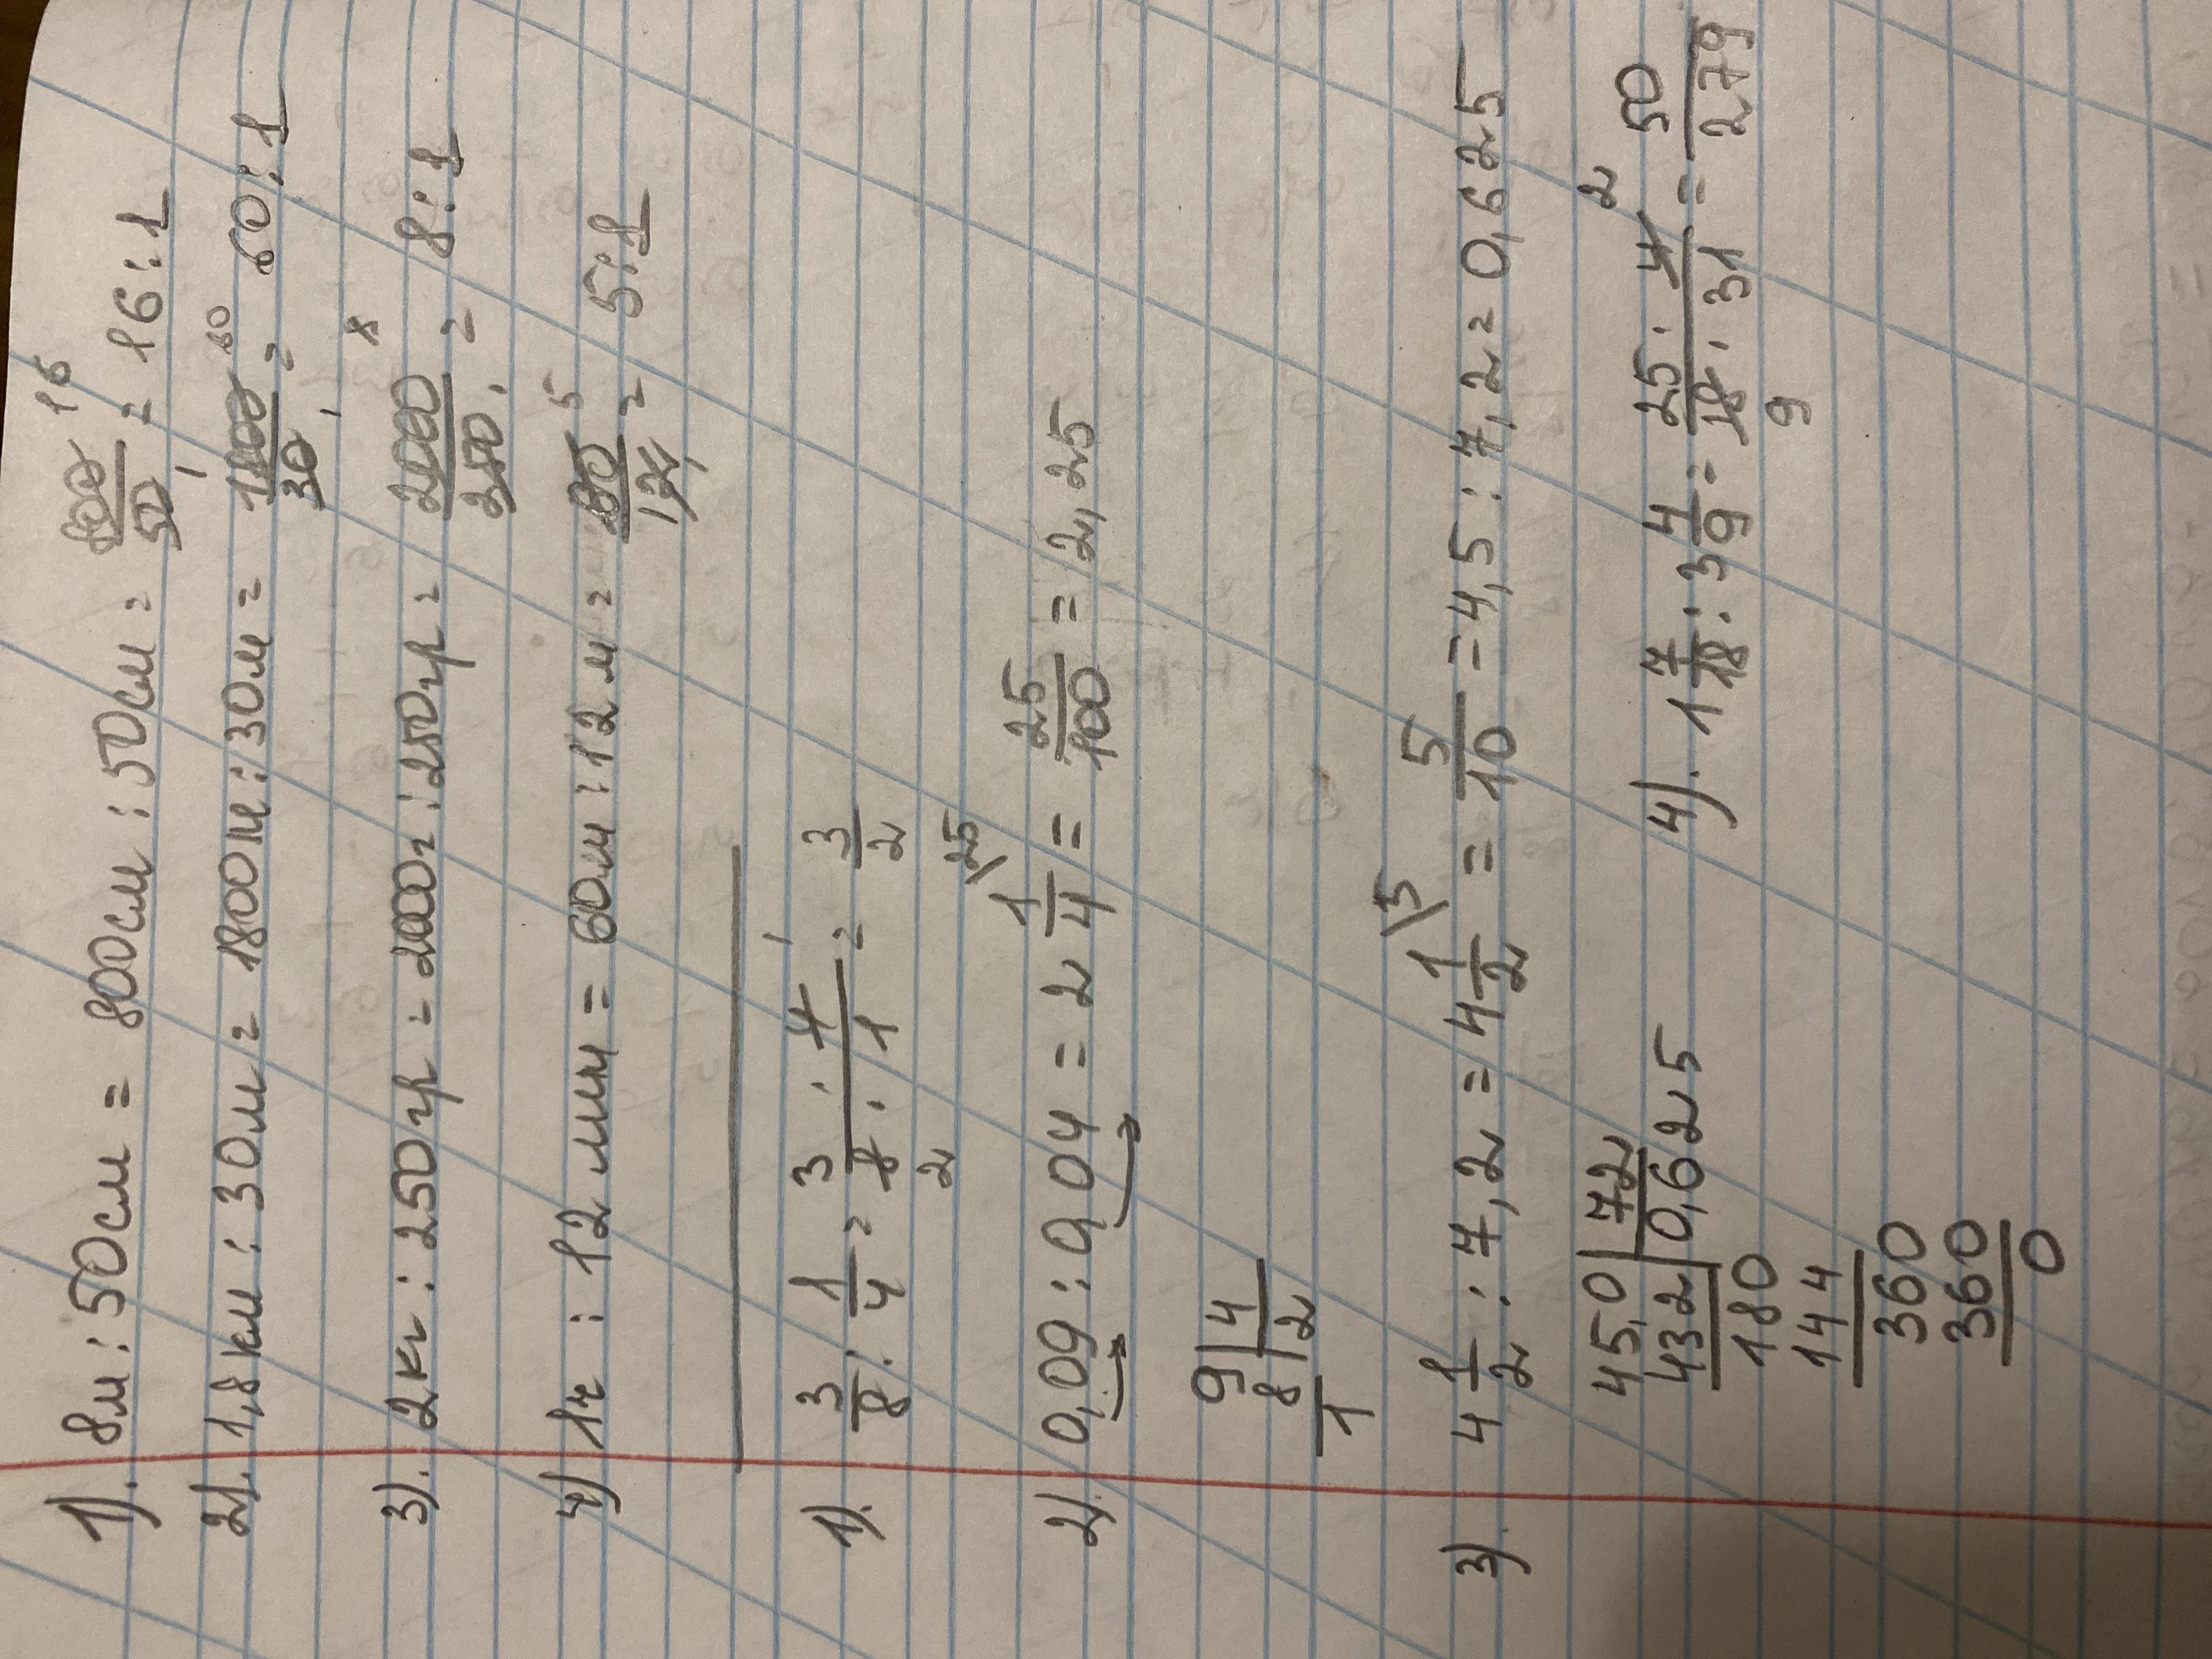 1). 8м : 50см = 800см : 50см = 800/50 = 16 : 1
2). 1,8км : 30м = 1800м : 30м = 1800/30 = 60 : 1
3). 2кг : 250гр = 2000г : 250гр = 2000/250 = 8 : 1
4) 1ч : 12 мин = 60м : 12м = 60/12 = 5 : 1
1). 3/8 : 1/4 = 3 · 4/8 · 1 = 3/2
2). 0,09 : 0,04 = 2 1/4 \25 = 25/100 = 2,25
9 | 4
8 | 2
1
3). 4 1/2 : 7,2 = 4 1/2 \5 = 5/10 = 4,5 : 7,2 = 0,625
45,0 | 72
432 | 0,625
180
144
360
360
0
4). 1 7/18 : 3 4/9 = 25 · 4/18 · 31 = 50/279